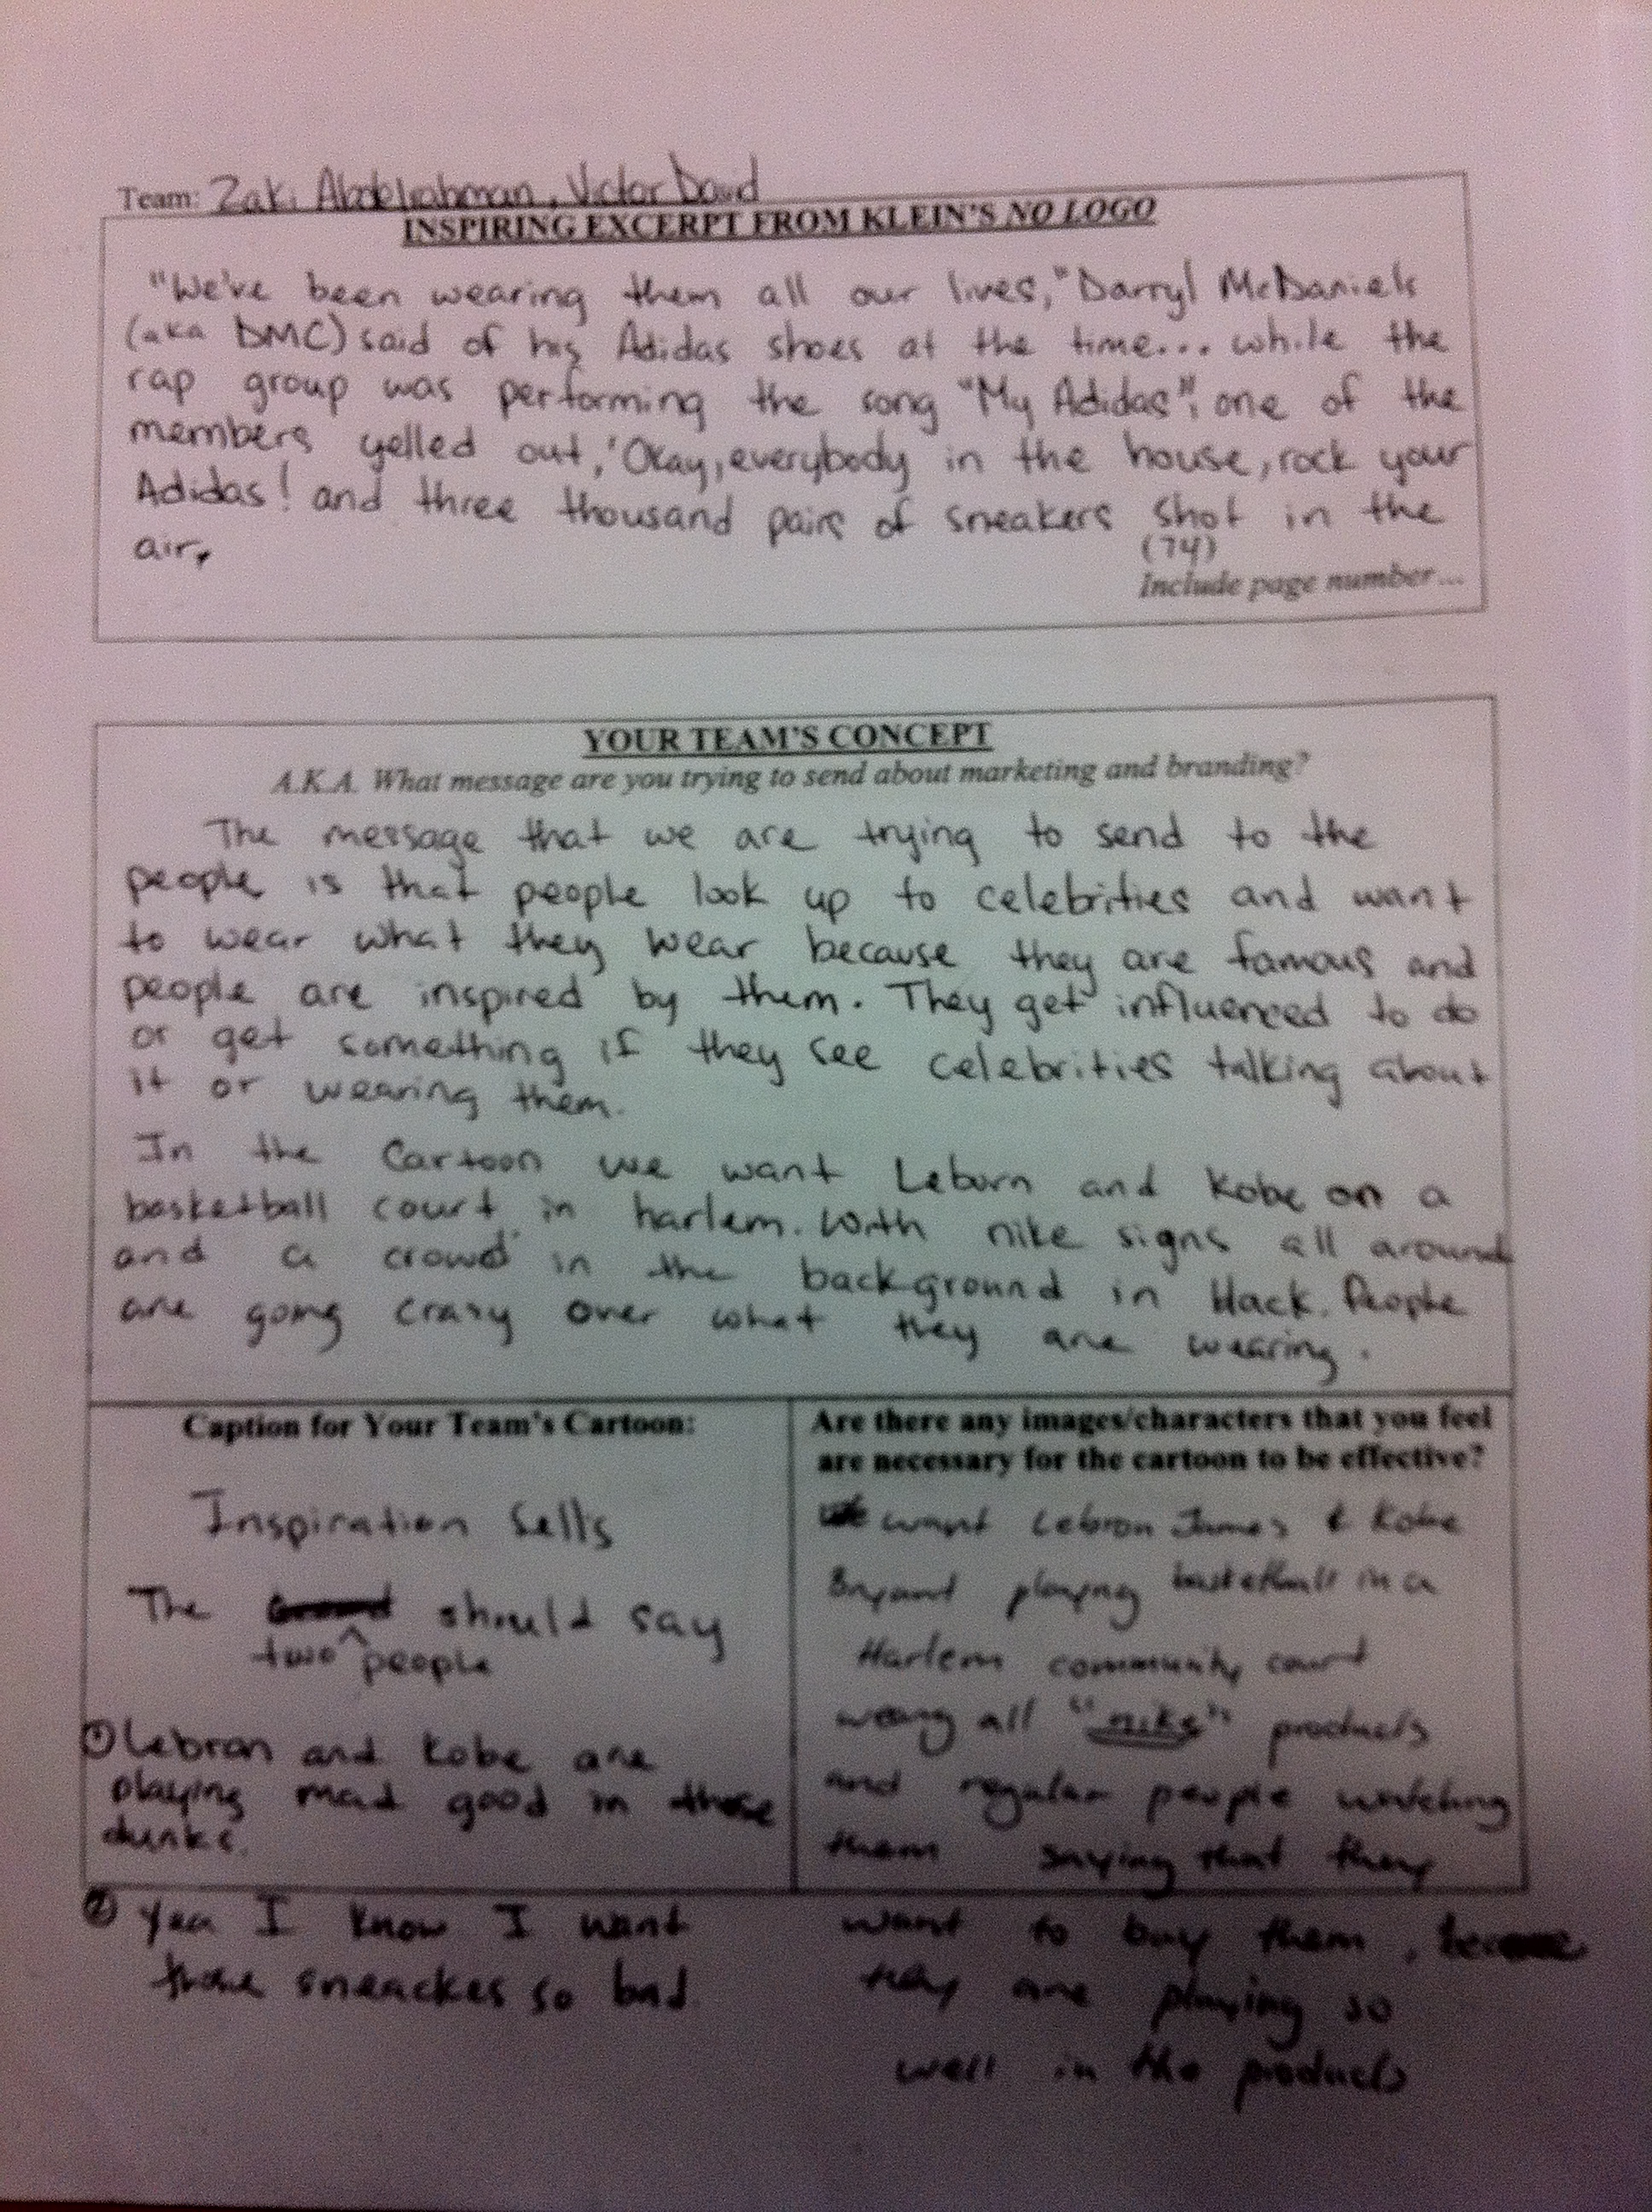 Team: Zaki Abdelrahman, Victor David
INSPIRING EXCERPT FROM KLEIN'S NO LOGO
"We've been wearing them all our lives," Darryl McDaniels
(aka DMC) said of his Adidas shoes at the time... while the
rap group was performing the song "My Adidas", one of the
members yelled out, 'Okay, everybody in the house, rock your
Adidas! and three thousand pairs of sneakers shot in the
air.
(74)
Include page number...
YOUR TEAM'S CONCEPT
A.K.A. What message are you trying to send about marketing and branding?
The message that we are trying to send to the
people is that people look up to celebrities and want
to wear what they wear because they are famous and
people are inspired by them. They get influenced to do
or get something if they see celebrities talking about
it or wearing them.
In the Cartoon we want Leburn and Kobe on a
basketball court in harlem. With nike signs all around
and a crowd in the background in black. People
are going crazy over what they are wearing.
Caption for Your Team's Cartoon:
Inspiration Sells
The should say
two people
① Lebron and Kobe are
playing mad good in those
dunks.
② Yea I know I want
those sneackes so bad.
Are there any images/characters that you feel
are necessary for the cartoon to be effective?
We want Lebron James & Kobe
Bryant playing basketball in a
Harlem community court
wearing all "nike" products
and regular people watching
them saying that they
want to buy them,
they are playing so
well in the products